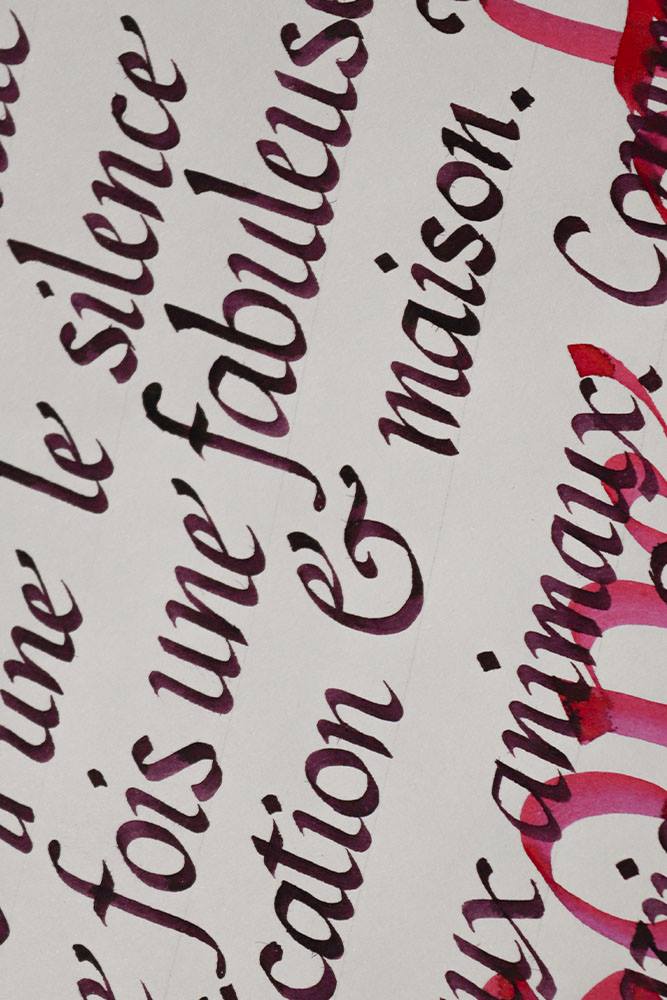 d'une le silence
fois une fabuleuse
cation & maison.
ux animaux. Comm